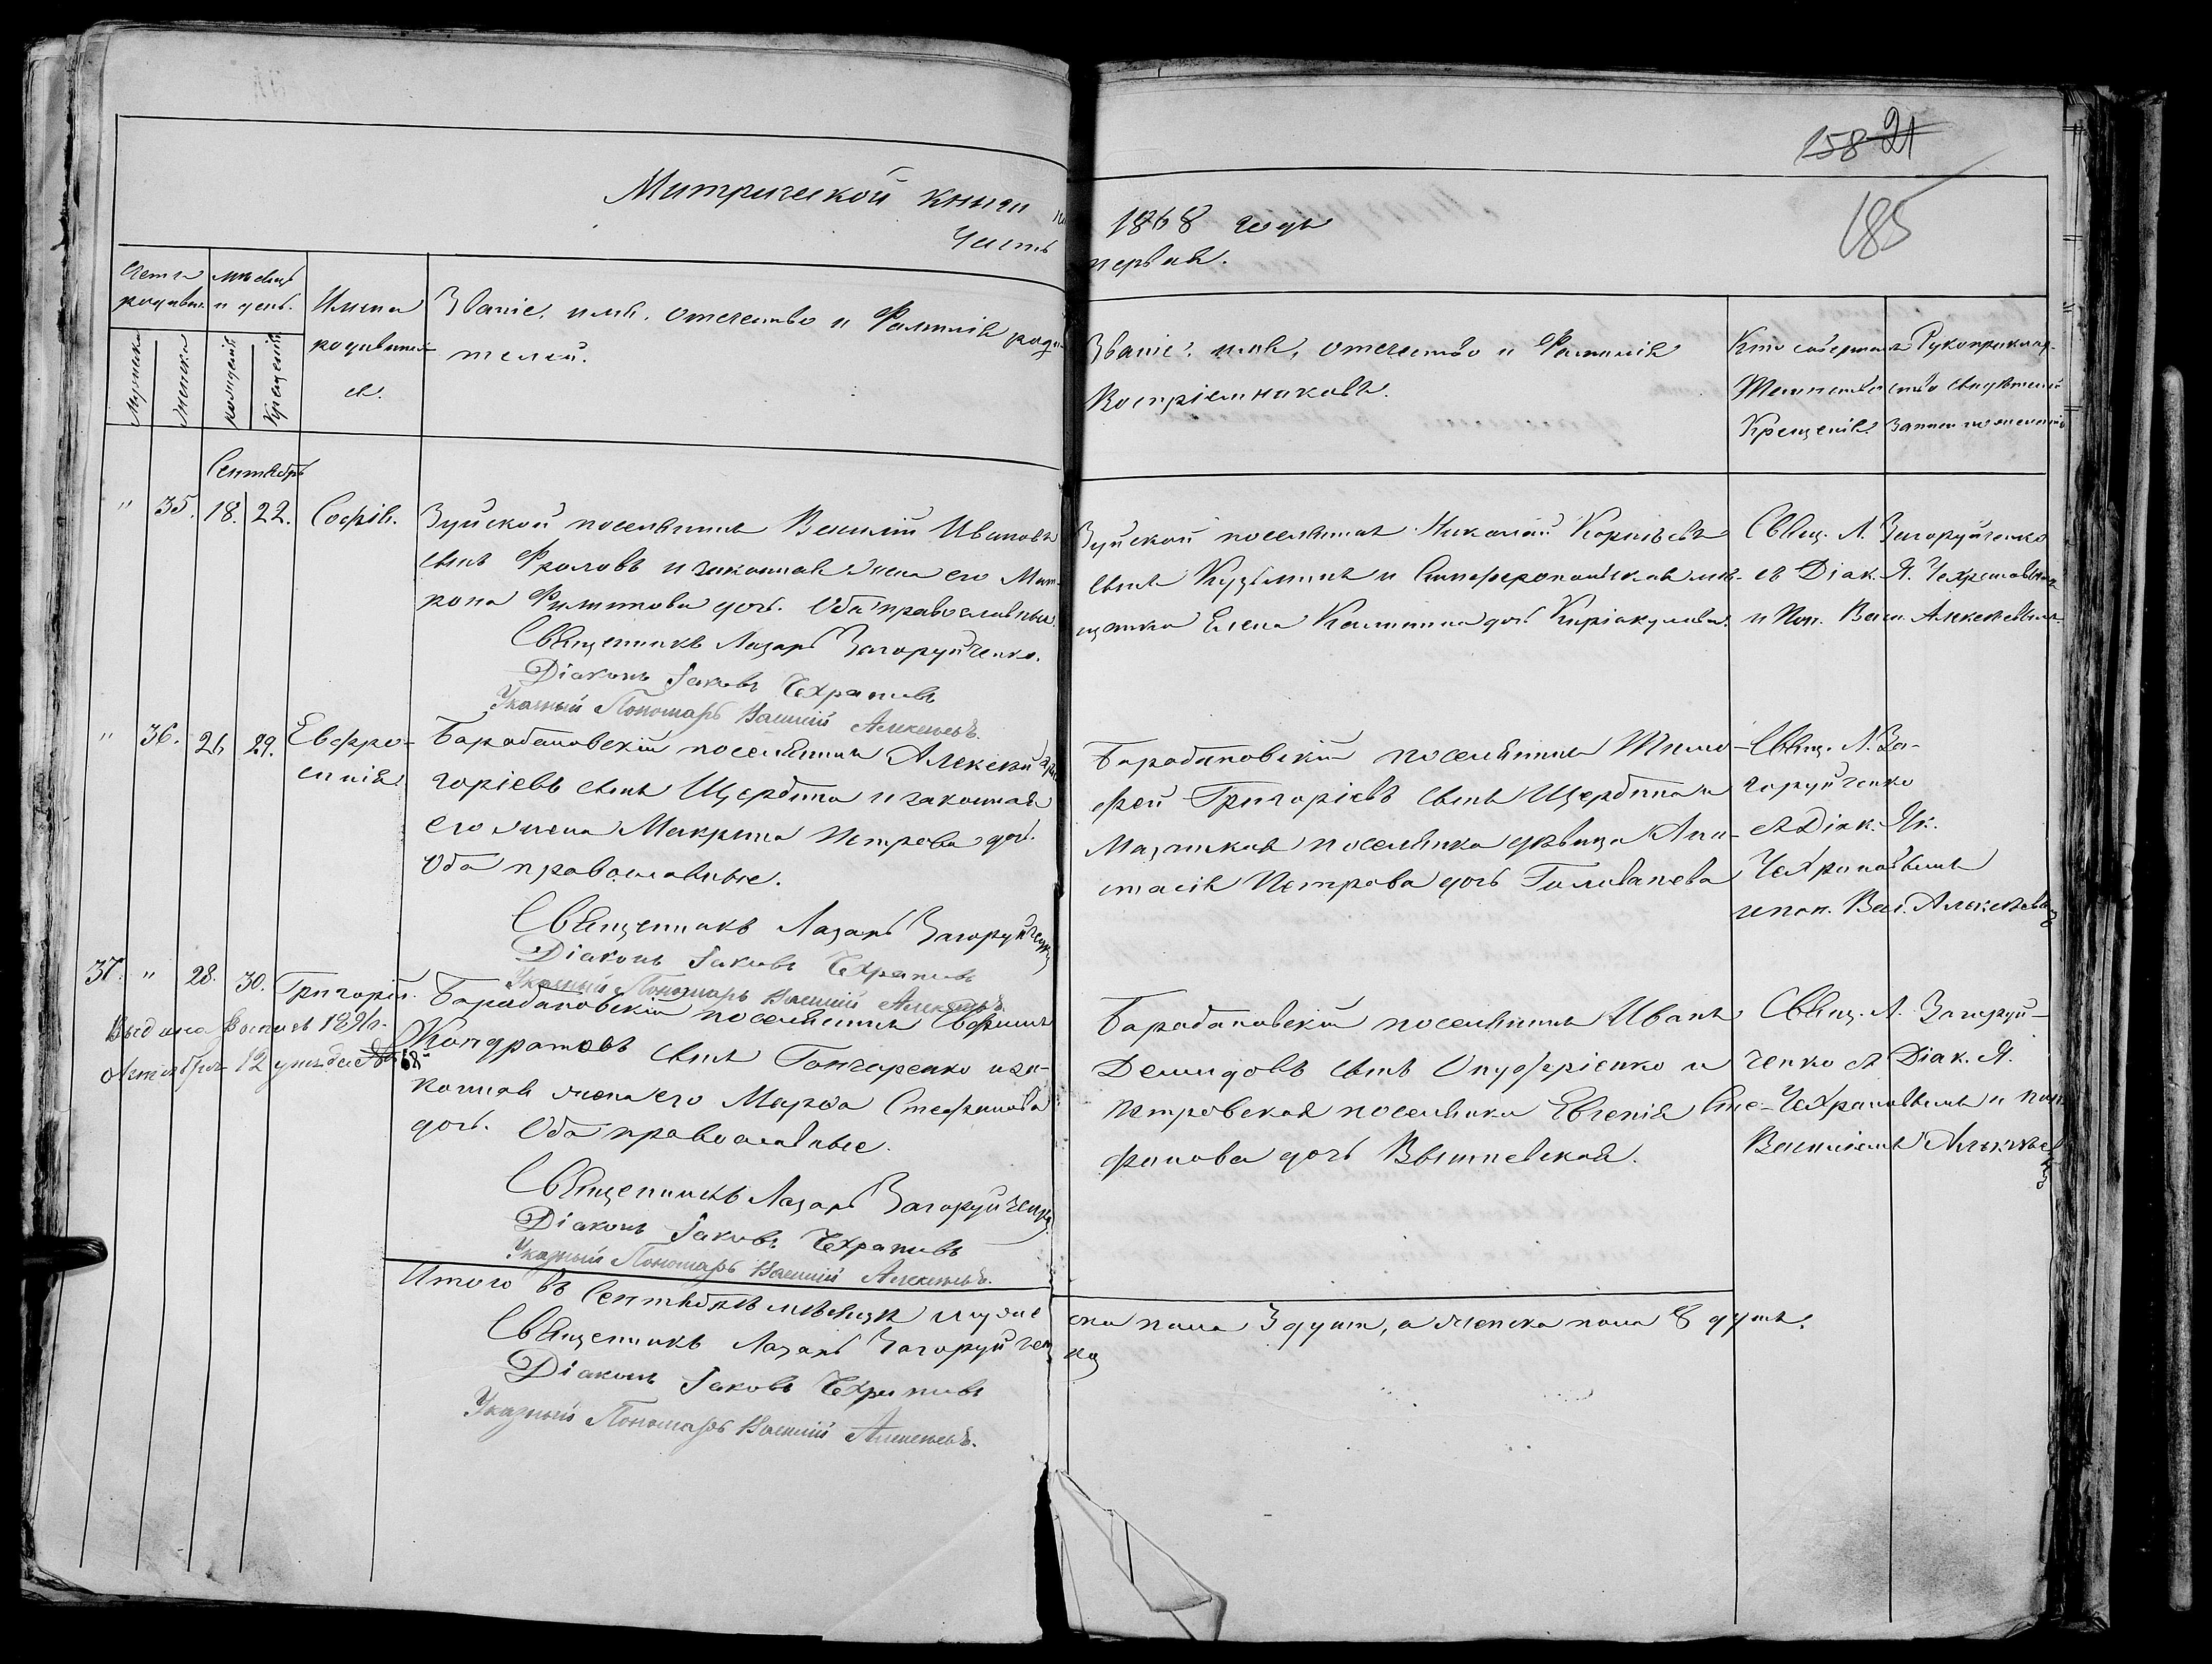 158 21
185
Митрической книги на
1868 годъ
Часть
первая.
Счетъ родивш.
Мужска
Женска
мѣсяцъ и день.
рожденія
Крещенія
Имена
родивших-
ся.
Званіе, имя, отечество и Фамилія роди-
телей.
Званіе, имя, отечество и Фамилія
Воспріемниковъ.
Кто совершалъ
Таинство
Крещенія.
Рукоприклад-
ство свидѣтелей
записи по желанію
Сентябрь
" 35. 18. 22. Софія.
Зуйской поселянинъ Василій Ивановъ
сынъ Фроловъ и законная жена его Мат-
рона Филипова дочь. Оба православные.
Священникъ Лазарь Загоруйченко.
Діаконъ Іаковъ Чехрановъ
Указный Пономарь Василій Алексѣевъ.
Зуйской поселянинъ Николай Корнѣевъ
сынъ Кузьминъ и Симферопольская мѣ-
щанка Елена Калинина дочь Киріакулова.
Свящ. Л. Загоруйченко
съ Діак. Я. Чехрановымъ
и Пон. Васи. Алексѣевымъ.
" 36. 21 29. Евфро-
синія
Барабановскій поселянинъ Алексѣй Гри
горіевъ сынъ Щербина и законная
его жена Макрина Петрова доч.
Оба православные.
Священникъ Лазарь Загоруйченко
Діаконъ Іаковъ Чехрановъ
Указный Пономарь Василій Алексѣевъ.
Барабановскій поселянинъ Тимо-
фей Григоріевъ сынъ Щербина и
Мазанская поселянка дѣвица Ана-
стасія Петрова дочь Голованева
Свящ. Л. За-
горуйченко
съ Діак. Як.
Чехрановымъ
и пон. Вас. Алексѣевымъ
37. " 28. 30. Григорій.
Выдана выпись 1891 г.
Октября 12 дня за № 68
Барабановскій поселянинъ Ефимъ
Кондратовъ сынъ Гончаренко и за-
конная жена его Марфа Стефанова
дочь. Оба православные.
Священникъ Лазарь Загоруйченко
Діаконъ Іаковъ Чехрановъ
Указный Пономарь Василій Алексѣевъ.
Барабановскій поселянинъ Иванъ
Демидовъ сынъ Онуфріенко и
Петровская поселянка Евгенія Сте-
фанова дочь Вышневская.
Свящ. Л. Загоруй-
ченко съ Діак. Я.
Чехрановымъ и пон.
Василіемъ Алексѣевымъ
Итого въ Сентябрѣ мѣсяцѣ мужe
ска пола 3 душ, а женска пола 8 душъ.
Священникъ Лазарь Загоруйчен
ко
Діаконъ Іаковъ Чехрановъ
Указный Пономарь Василій Алексѣевъ.